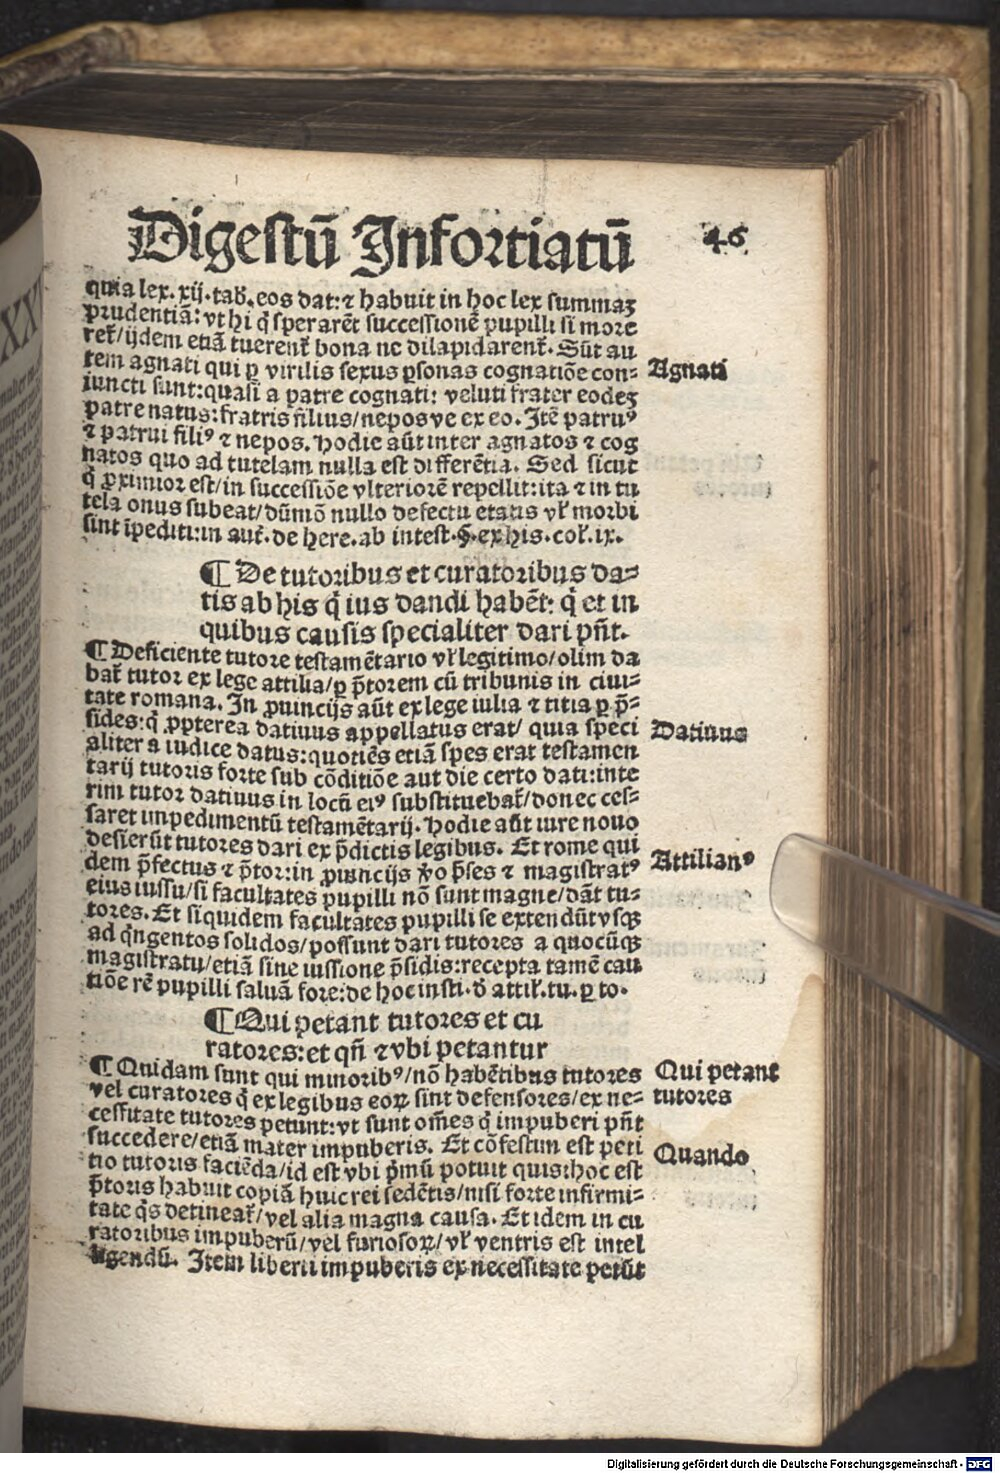 Digestū Infortiatū
46
quia lex. xij. tab. eos dat: ⁊ habuit in hoc lex summaʒ
prudentiā: vt hi q̄ sperarēt successionē pupilli si more
ret᷑/ ijdem etiā tuerent᷑ bona ne dilapidarent᷑. Sūt au
tem agnati qui ꝑ virilis sexus ꝑsonas cognatiōe con⸗
Agnati
iuncti sunt: quasi a patre cognati: veluti frater eodeʒ
patre natus: fratris filius/ neposve ex eo. Itē patruꝰ
⁊ patrui filiꝰ ⁊ nepos. Hodie aūt inter agnatos ⁊ cog
natos quo ad tutelam nulla est differētia. Sed sicut
q̄ ꝓximior est/ in successiōe vlteriorē repellit: ita ⁊ in tu
tela onus subeat/ dūmō nullo defectu etatis vl᷑ morbi
sint īpediti: in aut᷑. de here. ab intest. §. ex his. col᷑. ix.
¶ De tutoribus et curatoribus da⸗
tis ab his q̄ ius dandi habēt: q̄ et in
quibus causis specialiter dari pn̄t.
¶ Deficiente tutore testamētario vl᷑ legitimo/ olim da
bat᷑ tutor ex lege attilia/ ꝑ p̄torem cū tribunis in ciui⸗
tate romana. In ꝓuincijs aūt ex lege iulia ⁊ titia ꝑ p̄⸗
sides: q̄ ꝓpterea datiuus appellatus erat/ quia speci
Datiuus
aliter a iudice datus: quotiēs etiā spes erat testamen
tarij tutoris forte sub cōditiōe aut die certo dati: inte
rim tutor datiuus in locū eiꝰ substituebat᷑/ donec ces⸗
saret impedimentū testamētarij. Hodie aūt iure nouo
desierūt tutores dari ex p̄dictis legibus. Et rome qui
dem p̄fectus ⁊ p̄tor: in ꝓuincijs v̄o p̄ses ⁊ magistratꝰ
Attilianꝰ
eius iussu/ si facultates pupilli nō sunt magne/ dāt tu⸗
tores. Et siquidem facultates pupilli se extendūt vsqꝫ
ad q̄ngentos solidos/ possunt dari tutores a quocūqꝫ
magistratu/ etiā sine iussione p̄sidis: recepta tamē cau
tiōe rē pupilli saluā fore: de hoc insti. d̄ attil᷑. tu. ꝑ to.
¶ Qui petant tutores et cu
ratores: et qn̄ ⁊ vbi petantur
¶ Quidam sunt qui minoribꝰ/ nō habētibus tutores
Qui petant
vel curatores q̄ ex legibus eoꝝ sint defensores/ ex ne⸗
tutores
cessitate tutores petunt: vt sunt om̄es q̄ impuberi pn̄t
succedere/ etiā mater impuberis. Et cōfestim est peti
Quando
tio tutoris faciēda/ id est vbi p̄mū potuit quis: hoc est
p̄toris habuit copiā huic rei sedētis/ nisi forte infirmi⸗
tate q̄s detineat᷑/ vel alia magna causa. Et idem in cu
ratoribus impuberū/ vel furiosoꝝ/ vl᷑ ventris est intel
ligendū. Item liberti impuberis ex necessitate petūt
Digitalisierung gefördert durch die Deutsche Forschungsgemeinschaft - DFG